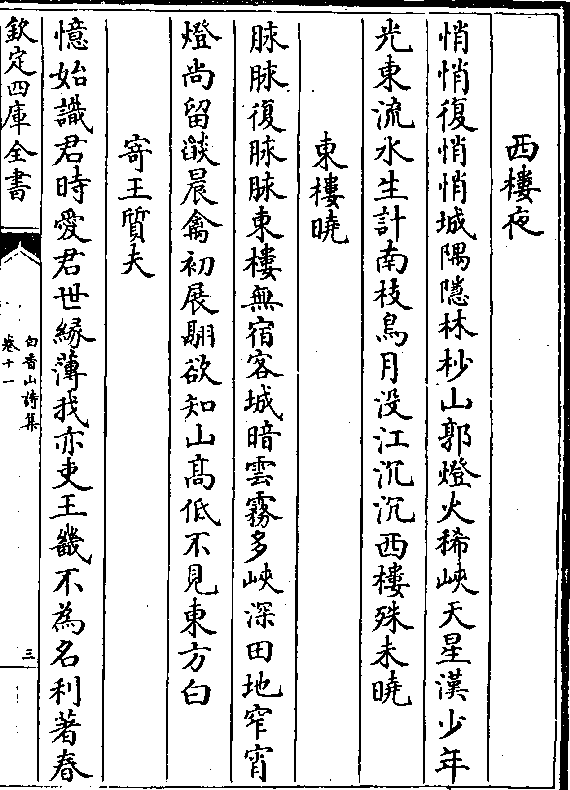 西樓夜
悄悄復悄悄城隅隱林杪山郭燈火稀峽天星漢少年
光東流水生計南枝鳥月没江沉沉西樓殊未曉
東樓曉
脉脉復脉脉東樓無宿客城暗雲霧多峽深田地窄宵
燈尚留燄晨禽初展翮欲知山髙低不見東方白
寄王質夫
憶始識君時愛君世緣薄我亦吏王畿不為名利著春
欽定四庫全書
白香山詩集
卷十一
三